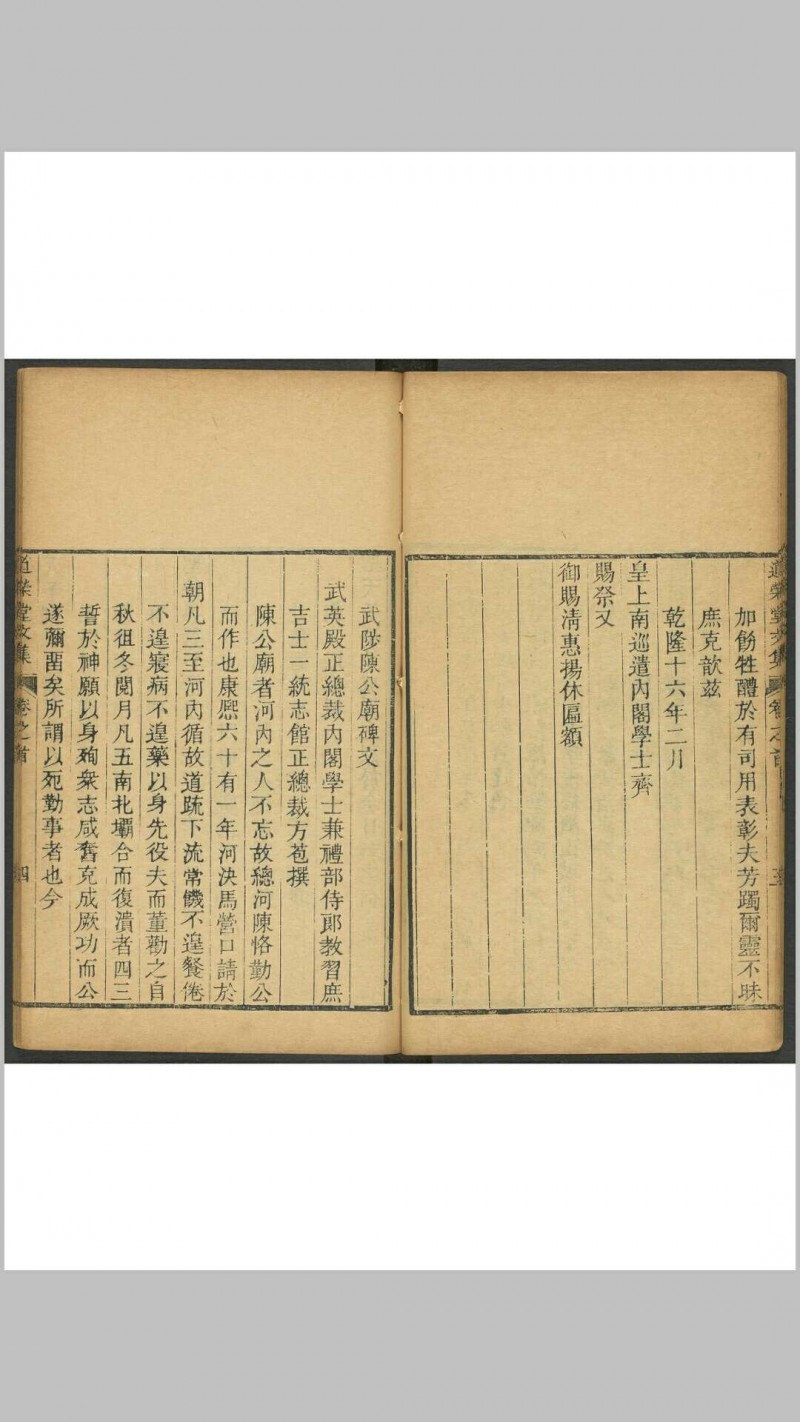 道榮堂文集
卷之首
三
加飭牲醴於有司用表彰夫芳躅爾靈不昧
庶克歆茲
乾隆十六年二月
皇上南巡遣內閣學士齊
賜祭又
御賜清惠揚休匾額
武陟陳公廟碑文
武英殿正總裁內閣學士兼禮部侍郎教習庶
吉士一統志館正總裁方苞撰
陳公廟者河內之人不忘故總河陳恪勤公
而作也康熙六十有一年河決馬營口請於
朝凡三至河內循故道疏下流常饑不遑餐倦
不遑寢病不遑藥以身先役夫而董勸之自
秋徂冬閱月凡五南北壩合而復潰者四三
誓於神願以身殉衆志咸奮克成厥功而公
遂彌留矣所謂以死勤事者也今
道榮堂文集
卷之首
四